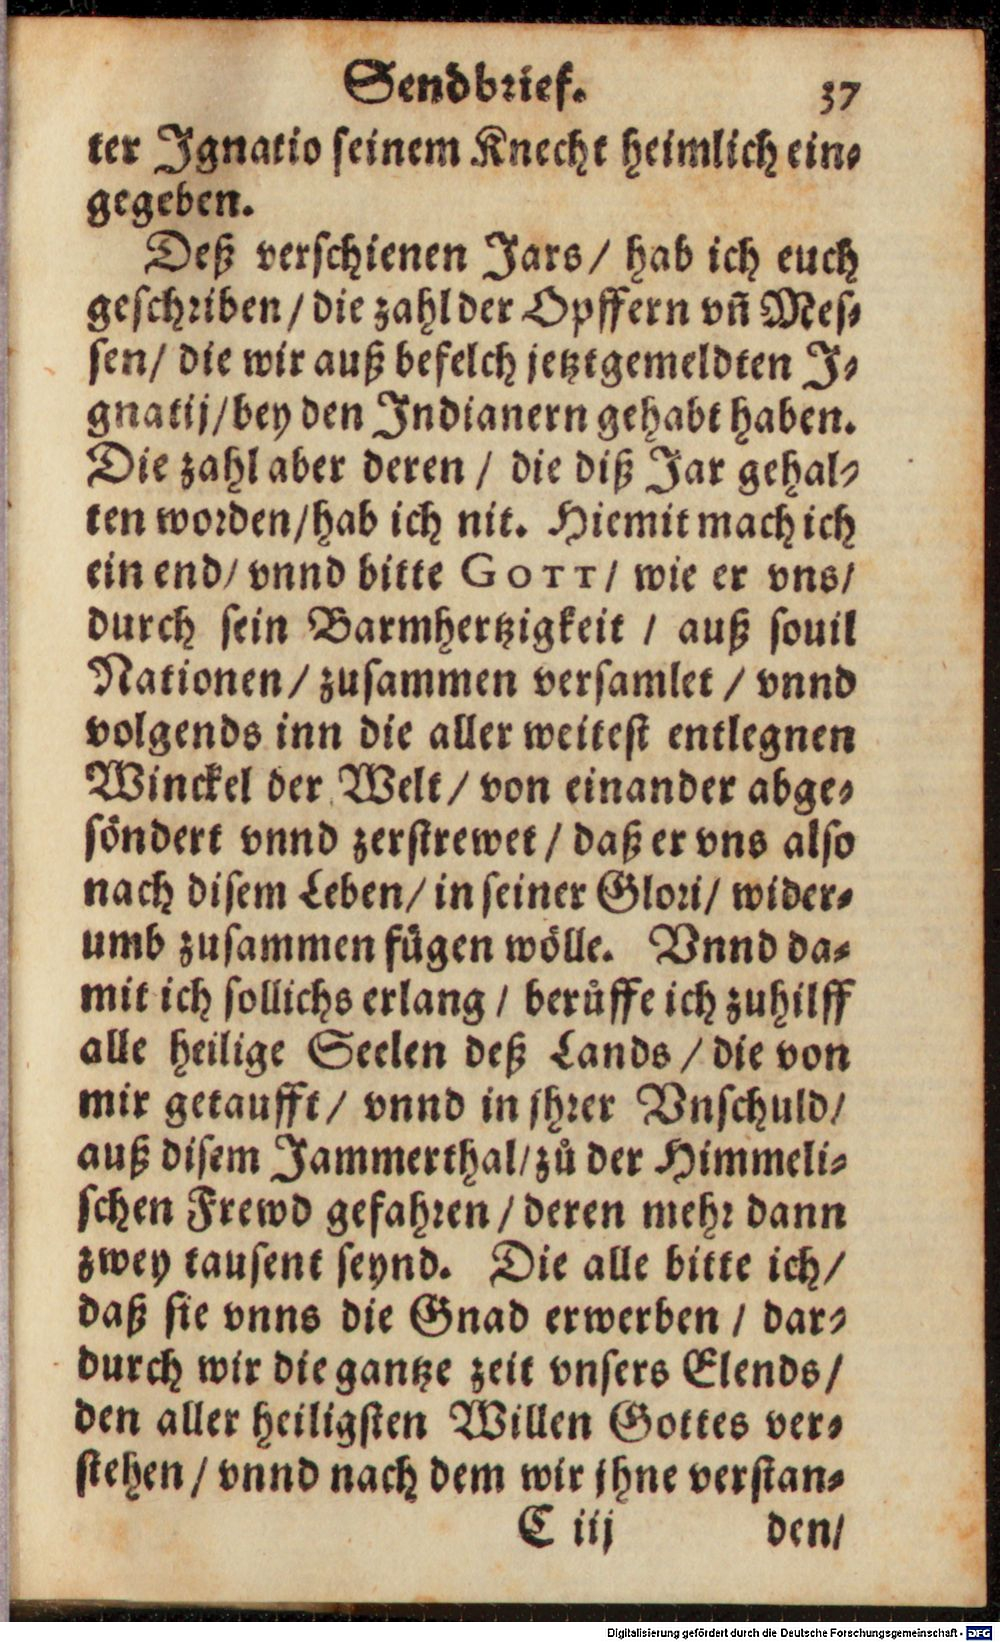 Sendbrief. 37
ter Ignatio seinem Knecht heimlich ein⸗
gegeben.
Deß verschienen Jars/ hab ich euch
geschriben/ die zahl der Opffern vñ Mes⸗
sen/ die wir auß befelch jetztgemeldten J⸗
gnatij/ bey den Indianern gehabt haben.
Die zahl aber deren / die diß Jar gehal⸗
ten worden/ hab ich nit. Hiemit mach ich
ein end/ vnnd bitte GOTT/ wie er vns/
durch sein Barmhertzigkeit / auß souil
Nationen/ zusammen versamlet / vnnd
volgends inn die aller weitest entlegnen
Winckel der Welt/ von einander abge⸗
söndert vnnd zerstrewet/ daß er vns also
nach disem Leben/ in seiner Glori/ wider⸗
umb zusammen fügen wölle. Vnnd da⸗
mit ich sollichs erlang / berůffe ich zuhilff
alle heilige Seelen deß Lands / die von
mir getaufft/ vnnd in jhrer Vnschuld/
auß disem Jammerthal/ zů der Himmeli⸗
schen Frewd gefahren / deren mehr dann
zwey tausent seynd. Die alle bitte ich/
daß sie vnns die Gnad erwerben / dar⸗
durch wir die gantze zeit vnsers Elends/
den aller heiligsten Willen Gottes ver⸗
stehen / vnnd nach dem wir jhne verstan⸗
C iij den/
Digitalisierung gefördert durch die Deutsche Forschungsgemeinschaft - DFG